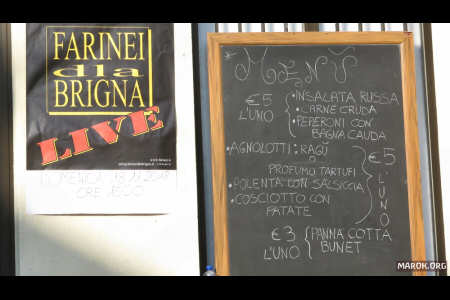 FARINEI
dla
BRIGNA
LIVE
MENÙ
€5
L'UNO
• INSALATA RUSSA
• CARNE CRUDA
• PEPERONI CON
BAGNA CAUDA
• AGNOLOTTI: RAGÙ
O
PROFUMO TARTUFI
• POLENTA CON SALSICCIA
• COSCIOTTO CON
PATATE
€5
L'UNO
€3
L'UNO
PANNA COTTA
BUNET
MAROK.ORG